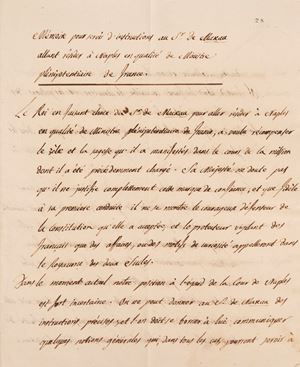 Mémoire pour servir d'instructions au Sr. de Mackau
allant résider à Naples en qualité de Ministre
plénipotentiaire de france.
Le Roi en faisant choix du Sr. de Mackau pour aller résider à Naples
en qualité de Ministre plénipotentiaire de france, a voulu récompenser
le zèle et la sagesse qu'il a manifestés dans le cours de la mission
dont il a été précédemment chargé. Sa Majesté ne doute pas
qu'il ne justifie complettement cette marque de confiance, et que fidèle
à sa première conduite il ne se montre le courageux défenseur de
la constitution qu'elle a acceptée, et le protecteur vigilant des
français que des affaires, ou des motifs de curiosité appelleroient dans
le Royaume des deux Siciles.
Dans le moment actuel notre position à l'égard de la Cour de Naples
est fort incertaine. On ne peut donner au S. de Mackau des
instructions précises, et l'on doit se borner à lui communiquer
quelques notions générales qui, dans tous les cas, pourront servir à